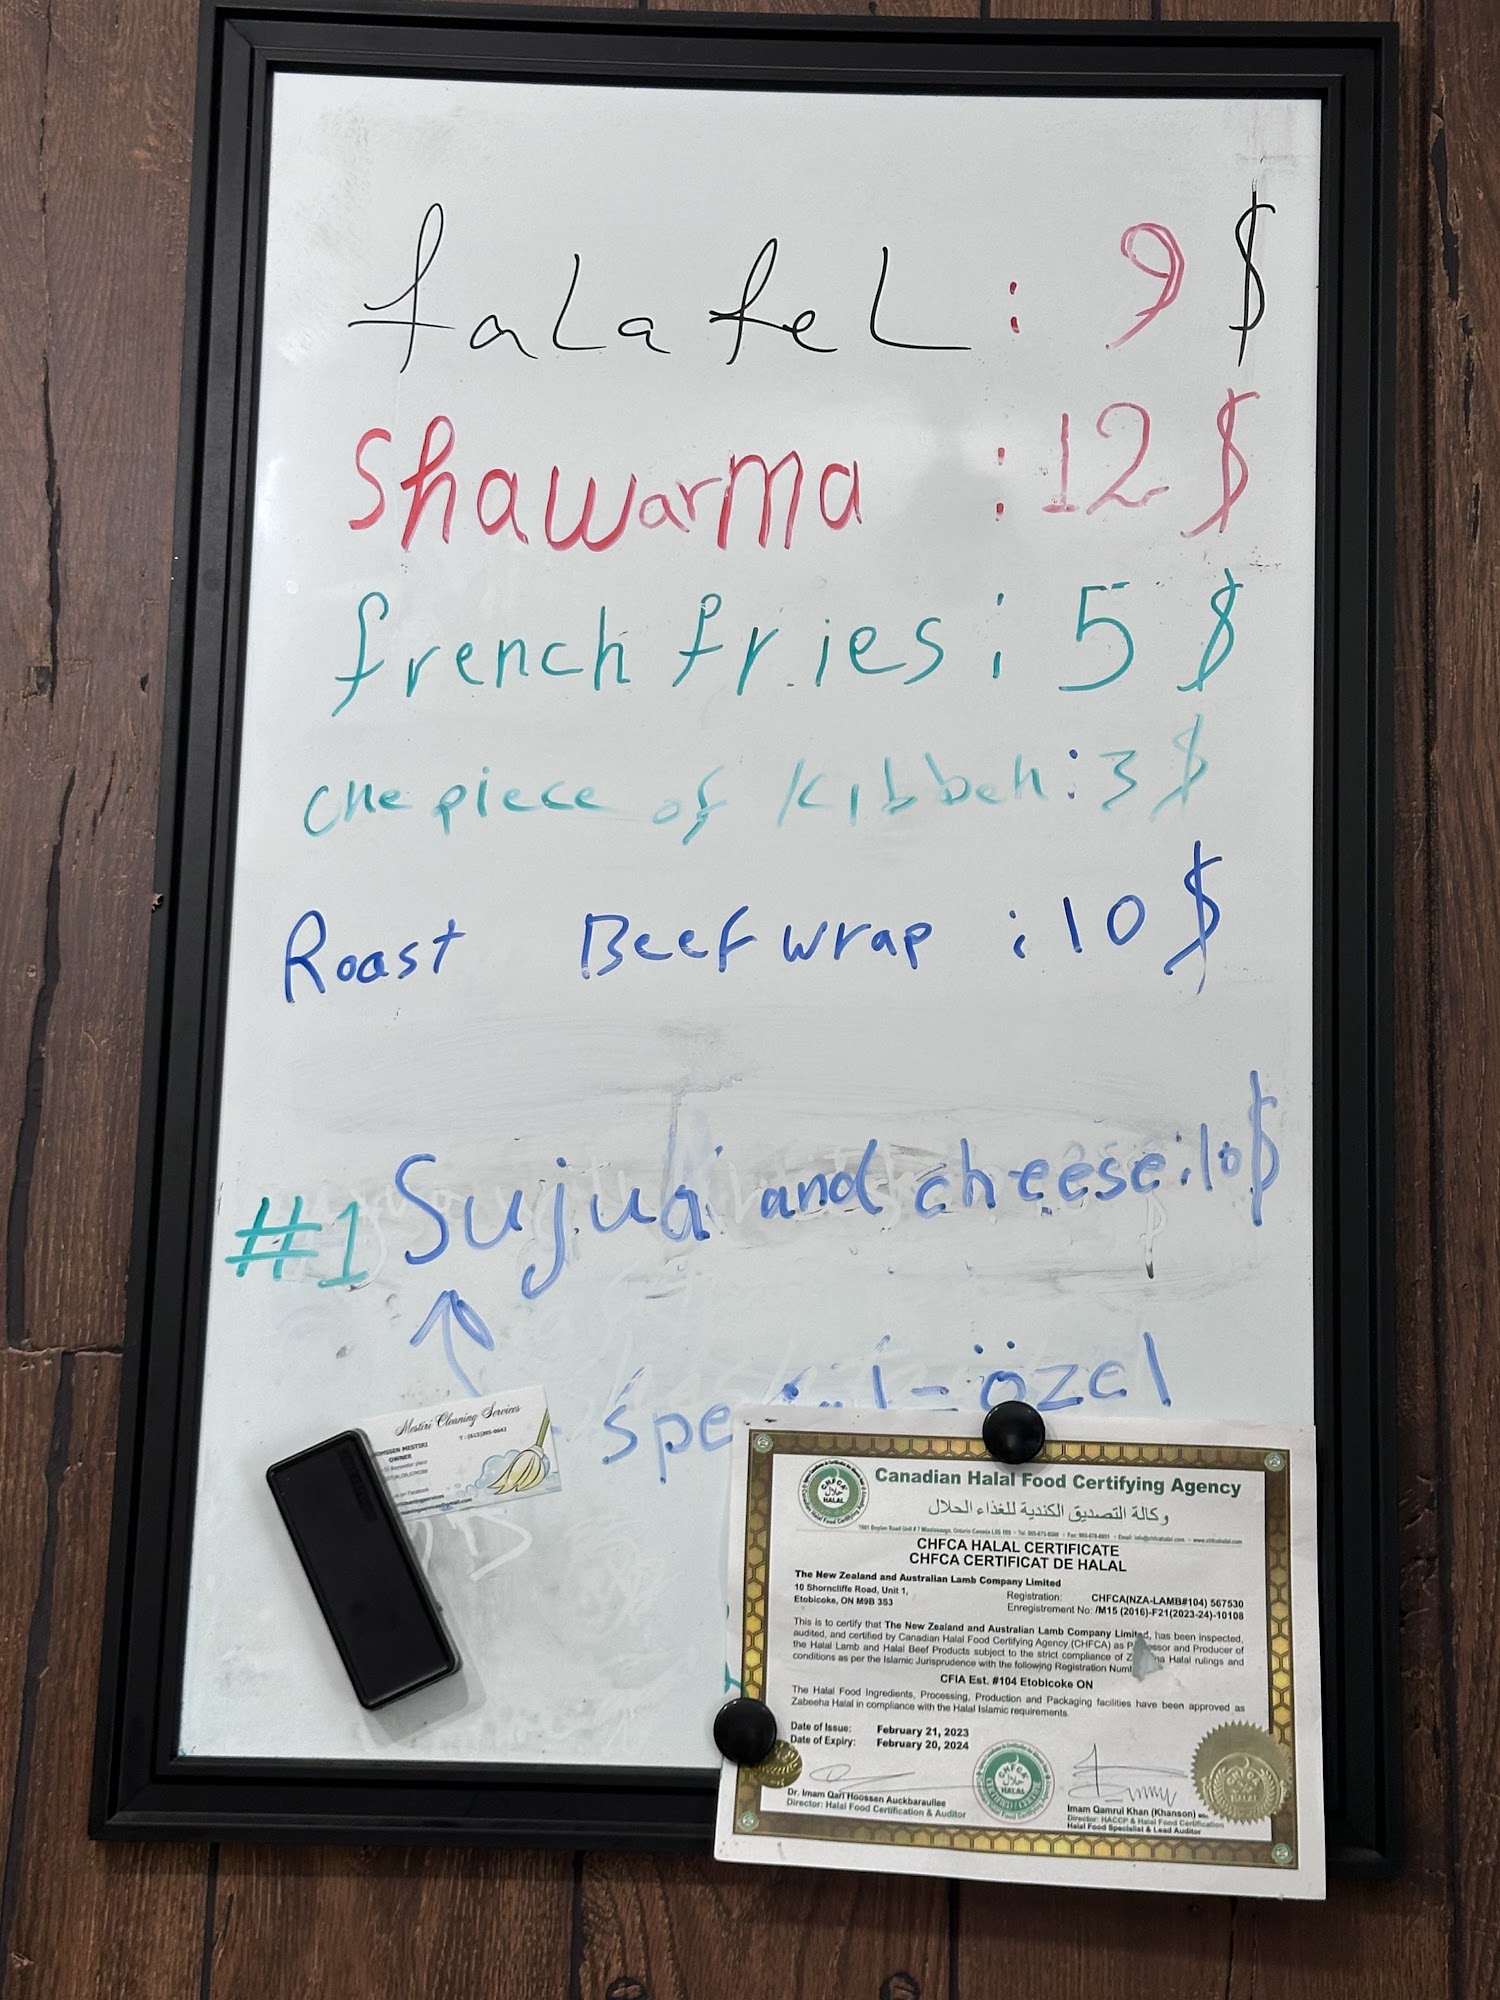 falafel : 9 $
Shawarma : 12 $
french fries : 5 $
One piece of Kibbeh : 3 $
Roast Beef wrap : 10 $
#1 Sujua and cheese : 10 $
special = özel
Mestiri Cleaning Services
MESTIRI
OWNER
Canadian Halal Food Certifying Agency
وكالة التصديق الكندية للغذاء الحلال
CHFCA HALAL CERTIFICATE
CHFCA CERTIFICAT DE HALAL
The New Zealand and Australian Lamb Company Limited
10 Shorncliffe Road, Unit 1,
Etobicoke, ON M9B 3S3
Registration: CHFCA(NZA-LAMB#104) 567530
Enregistrement No: /M15 (2016)-F21(2023-24)-10108
This is to certify that The New Zealand and Australian Lamb Company Limited, has been inspected,
audited, and certified by Canadian Halal Food Certifying Agency (CHFCA) as Processor and Producer of
the Halal Lamb and Halal Beef Products subject to the strict compliance of Zabeeha Halal rulings and
conditions as per the Islamic Jurisprudence with the following Registration Number
CFIA Est. #104 Etobicoke ON
The Halal Food Ingredients, Processing, Production and Packaging facilities have been approved as
Zabeeha Halal in compliance with the Halal Islamic requirements.
Date of Issue: February 21, 2023
Date of Expiry: February 20, 2024
Dr. Imam Qari Hoossen Auckbaraullee
Director: Halal Food Certification & Auditor
Imam Qamrul Khan (Khanson)
Director: HACCP & Halal Food Certification
Halal Food Specialist & Lead Auditor